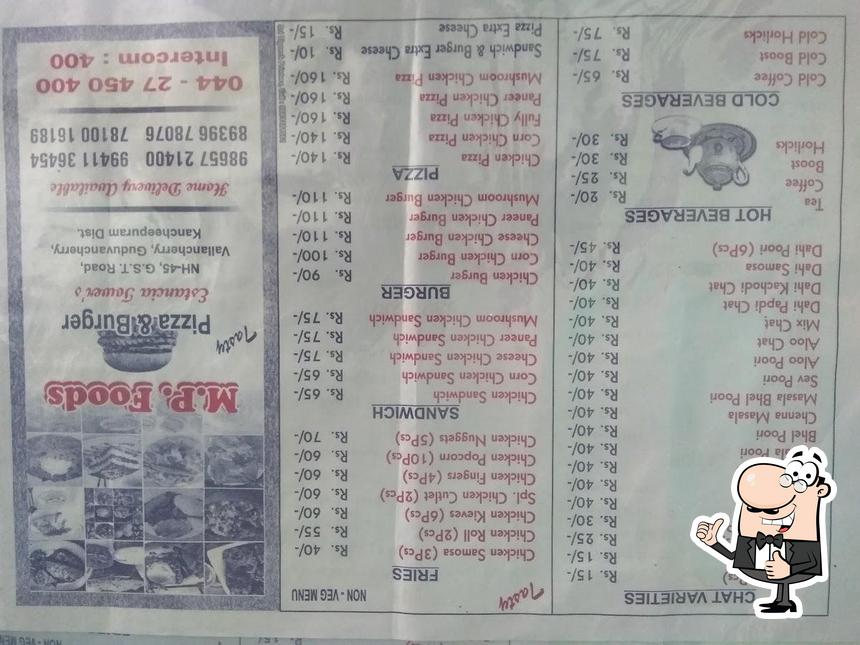 CHAT VARIETIES
Rs. 15/-
Rs. 15/-
Rs. 25/-
Rs. 30/-
Rs. 40/-
Rs. 40/-
Poori Rs. 40/-
Bhel Poori Rs. 40/-
Chenna Masala Rs. 40/-
Masala Bhel Poori Rs. 40/-
Sev Poori Rs. 40/-
Aloo Poori Rs. 40/-
Aloo Chat Rs. 40/-
Mix Chat Rs. 40/-
Dahi Papdi Chat Rs. 40/-
Dahi Kachodi Chat Rs. 40/-
Dahi Samosa Rs. 40/-
Dahi Poori (6Pcs) Rs. 45/-
HOT BEVERAGES
Tea Rs. 20/-
Coffee Rs. 25/-
Boost Rs. 30/-
Horlicks Rs. 30/-
COLD BEVERAGES
Cold Coffee Rs. 65/-
Cold Boost Rs. 75/-
Cold Horlicks Rs. 75/-
Tasty
NON - VEG MENU
FRIES
Chicken Samosa (3Pcs) Rs. 40/-
Chicken Roll (2Pcs) Rs. 55/-
Chicken Kieves (6Pcs) Rs. 60/-
Spl. Chicken Cutlet (2Pcs) Rs. 60/-
Chicken Fingers (4Pcs) Rs. 60/-
Chicken Popcorn (10Pcs) Rs. 60/-
Chicken Nuggets (5Pcs) Rs. 70/-
SANDWICH
Chicken Sandwich Rs. 65/-
Corn Chicken Sandwich Rs. 65/-
Cheese Chicken Sandwich Rs. 75/-
Paneer Chicken Sandwich Rs. 75/-
Mushroom Chicken Sandwich Rs. 75/-
BURGER
Chicken Burger Rs. 90/-
Corn Chicken Burger Rs. 100/-
Cheese Chicken Burger Rs. 110/-
Paneer Chicken Burger Rs. 110/-
Mushroom Chicken Burger Rs. 110/-
PIZZA
Chicken Pizza Rs. 140/-
Corn Chicken Pizza Rs. 140/-
Fully Chicken Pizza Rs. 160/-
Paneer Chicken Pizza Rs. 160/-
Mushroom Chicken Pizza Rs. 160/-
Sandwich & Burger Extra Cheese Rs. 10/-
Pizza Extra Cheese Rs. 15/-
M.P. Foods
Tasty
Pizza & Burger
Estancia Tower's
NH-45, G.S.T. Road,
Vallancherry, Guduvancherry,
Kancheepuram Dist.
Home Delivery Available
98657 21400 99411 36454
89396 78076 78100 16189
044 - 27 450 400
Intercom : 400